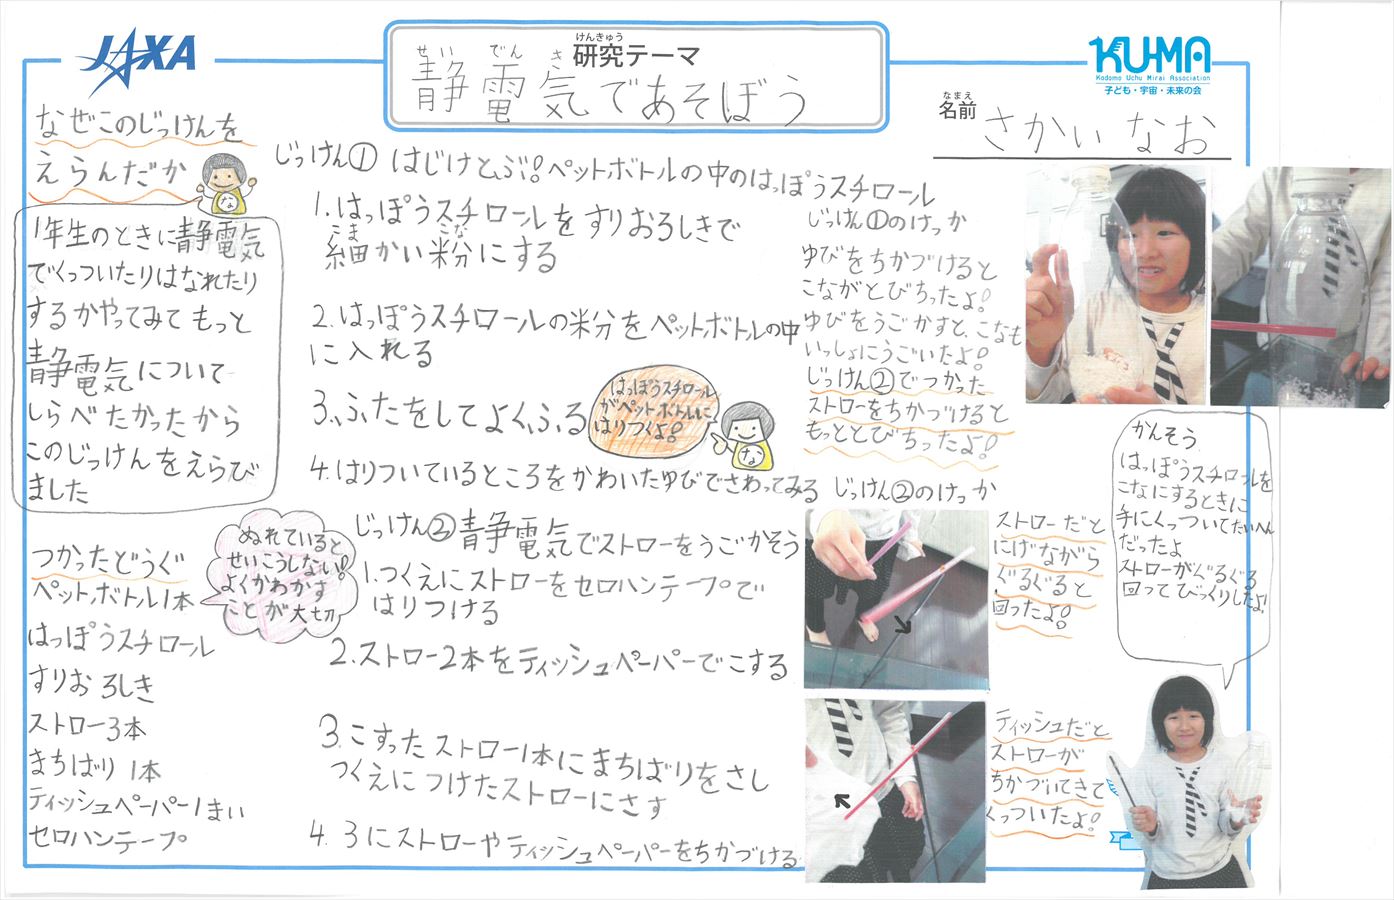 JAXA
けんきゅう
研究テーマ
せい でん き
静電気であそぼう
KU-MA
Kodomo Uchu Mirai Association
子ども・宇宙・未来の会
なまえ
名前
さかい なお
なぜこのじっけんを
えらんだか
な
1年生のときに静電気
でくっついたりはなれたり
するかやってみてもっと
静電気について
しらべたかったから
このじっけんをえらび
ました
つかったどうぐ
ペットボトル1本
はっぽうスチロール
すりおろしき
ストロー3本
まちばり1本
ティッシュペーパー1まい
セロハンテープ
ぬれていると
せいこうしない!
よくかわかす
ことが大切
じっけん① はじけとぶ!ペットボトルの中のはっぽうスチロール
1.はっぽうスチロールをすりおろしきで
こま こな
細かい粉にする
2.はっぽうスチロールの粉をペットボトルの中
に入れる
3.ふたをしてよくふる
はっぽうスチロール
がペットボトルに
はりつくよ!
な
4.はりついているところをかわいたゆびでさわってみる
じっけん②静電気でストローをうごかそう
1.つくえにストローをセロハンテープで
はりつける
2.ストロー2本をティッシュペーパーでこする
3.こすったストロー1本にまちばりをさし
つくえにつけたストローにさす
4.3にストローやティッシュペーパーをちかづける
じっけん①のけっか
ゆびをちかづけると
こながとびちったよ!
ゆびをうごかすと、こなも
いっしょにうごいたよ!
じっけん②でつかった
ストローをちかづけると
もっととびちったよ!
じっけん②のけっか
ストローだと
にげながら
ぐるぐると
回ったよ!
ティッシュだと
ストローが
ちかづいてきて
くっついたよ!
かんそう
はっぽうスチロールを
こなにするときに
手にくっついてたいへん
だったよ
ストローがぐるぐる
回ってびっくりしたよ!